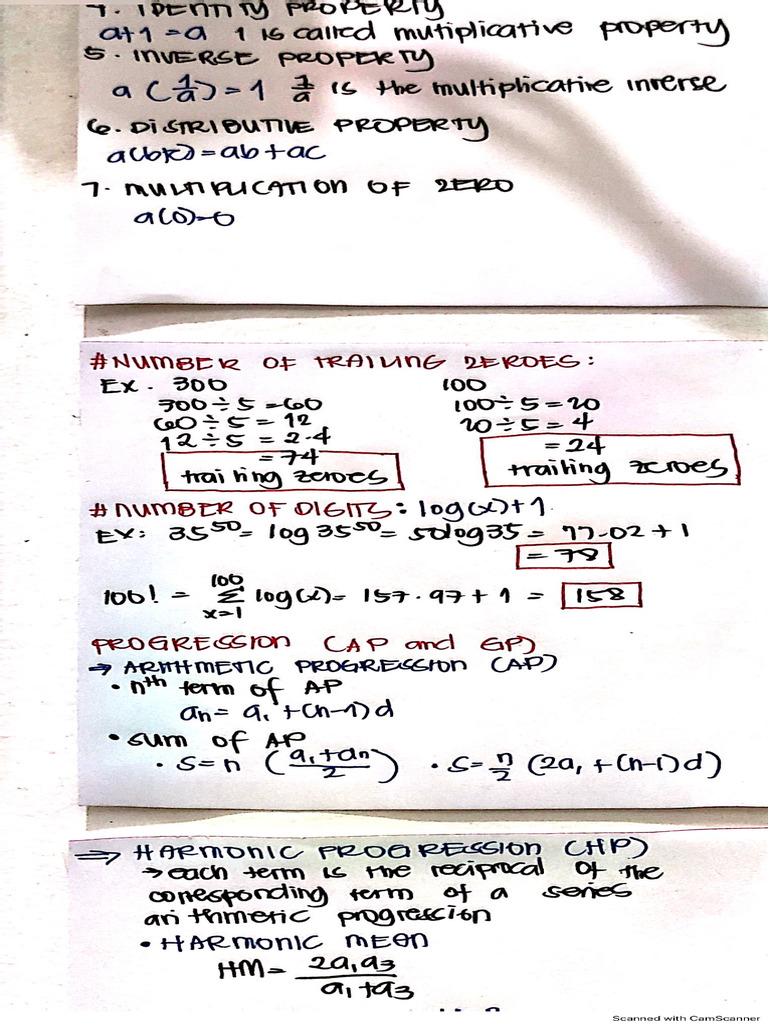 4. IDENTITY PROPERTY
a+1=a 1 is called mutiplicative property
5. INVERSE PROPERTY
a (1/a) = 1 1/a is the multiplicative inverse
6. DISTRIBUTIVE PROPERTY
a(b+c)=ab+ac
7. MULTIPLICATION OF ZERO
a(0)=0
#NUMBER OF TRAILING ZEROES:
EX. 300 100
300÷5=60 100÷5=20
60÷5=12 20÷5=4
12÷5=2.4 =24
=74 trailing zeroes
trailing zeroes
#NUMBER OF DIGITS: log(x)+1
EX: 35^50= log 35^50= 50log35= 77.02+1
=78
100! = 100 Σ x=1 log(x)= 157.97+1 = 158
PROGRESSION (AP and GP)
→ ARITHMETIC PROGRESSION (AP)
• nth term of AP
an= a1+(n-1)d
• sum of AP
• S=n (a1+an/2) • S=n/2 (2a1+(n-1)d)
⇒ HARMONIC PROGRESSION (HP)
→ each term is the reciprocal of the
corresponding term of a series
arithmetic progression
• HARMONIC MEAN
HM= 2a1a3/a1+a3
Scanned with CamScanner